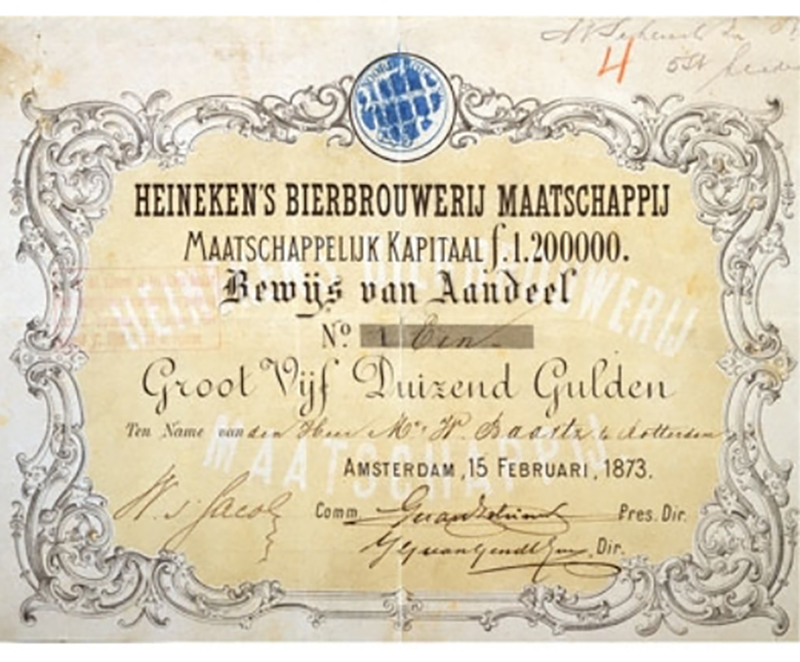 4
HEINEKEN'S BIERBROUWERIJ MAATSCHAPPIJ
MAATSCHAPPELIJK KAPITAAL f.1.200000.
Bewijs van Aandeel
No. 1 Een
Groot Vijf Duizend Gulden
Ten Name van den Heer Mr. W. Baartz te Rotterdam
HEINEKENS BIERBROUWERIJ
MAATSCHAPPIJ
AMSTERDAM, 15 FEBRUARI, 1873.
W. s' Jacob Comm. Pres. Dir.
Dir.